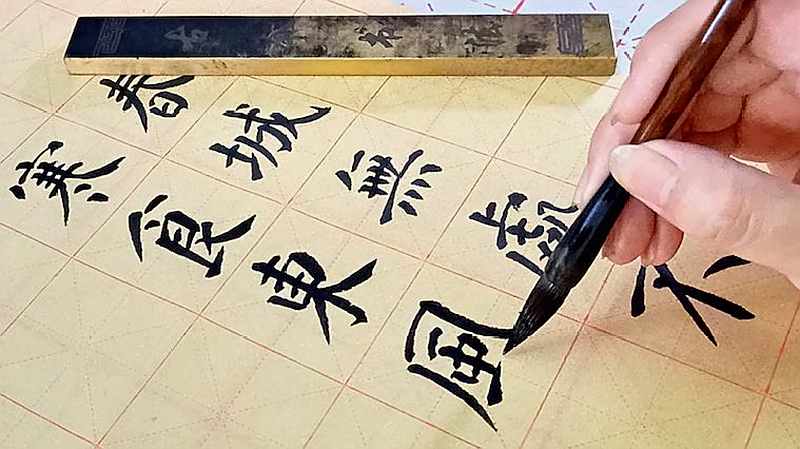 春城無處不
寒食東風